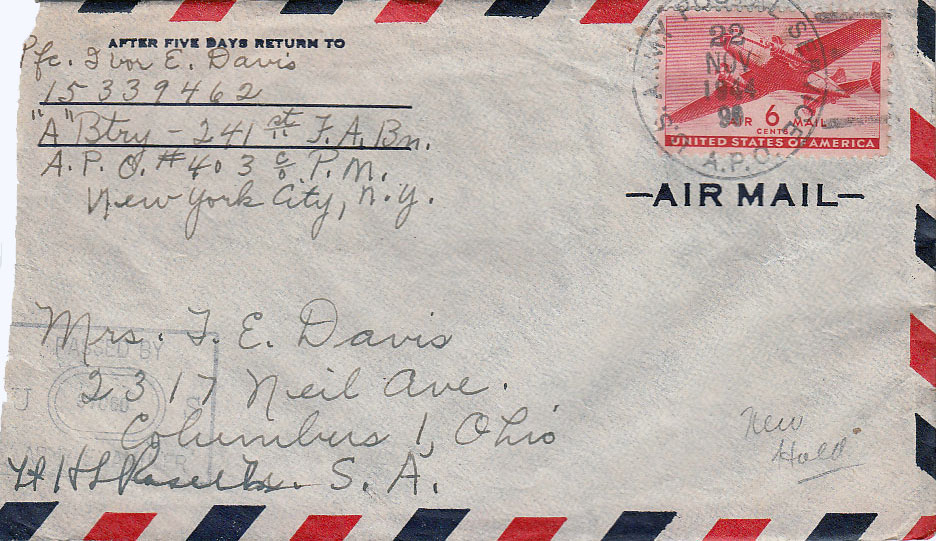 AFTER FIVE DAYS RETURN TO
Pfc. Ivor E. Davis
15339462
"A" Btry - 241st F.A. Bn.
A.P.O. #403 c/o P.M.
New York City, N.Y.
U.S. ARMY POSTAL SERVICE
22
NOV
1944
A.P.O.
AIR 6 MAIL
CENTS
UNITED STATES OF AMERICA
—AIR MAIL—
Mrs. I. E. Davis
2317 Neil Ave.
Columbus 1, Ohio
S. A.
PASSED BY
New
Hold